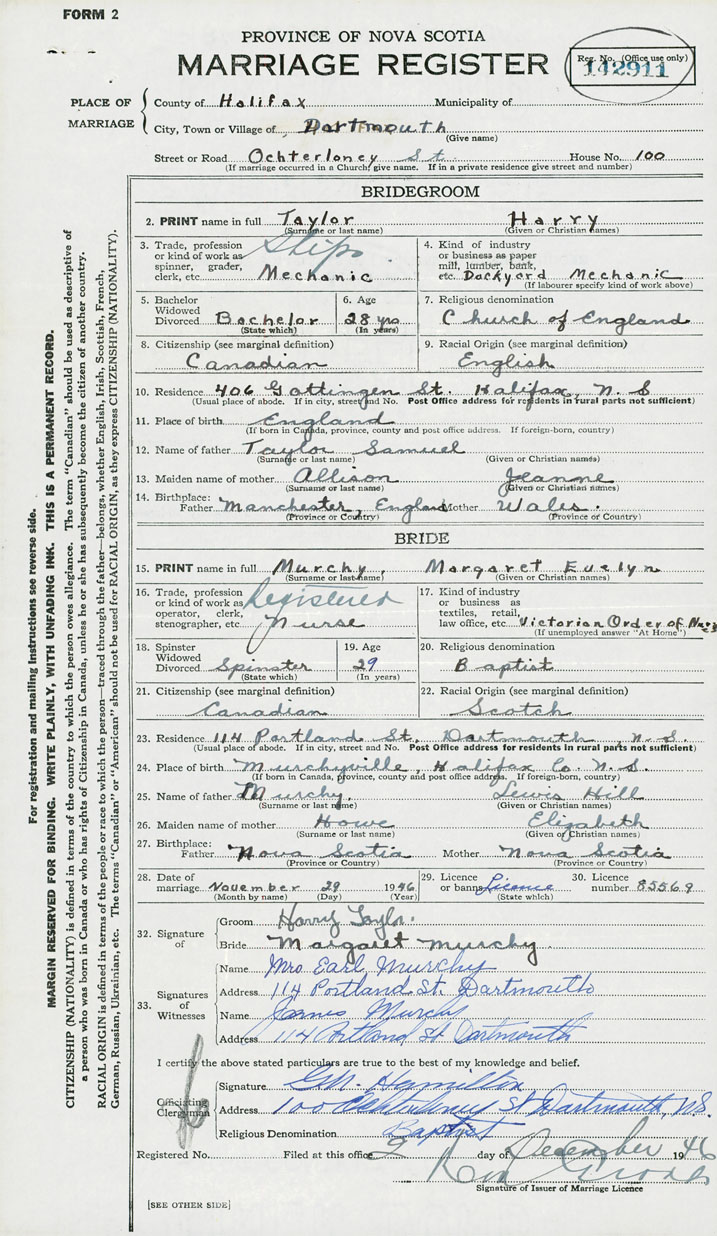 FORM 2
PROVINCE OF NOVA SCOTIA
MARRIAGE REGISTER
Reg. No. (Office use only)
142911
PLACE OF MARRIAGE
County of Halifax Municipality of
City, Town or Village of Dartmouth
(Give name)
Street or Road Ochterloney St. House No. 100
(If marriage occurred in a Church, give name. If in a private residence give street and number)
BRIDEGROOM
2. PRINT name in full Taylor Harry
(Surname or last name) (Given or Christian names)
3. Trade, profession or kind of work as spinner, grader, clerk, etc. Ships Mechanic
4. Kind of industry or business as paper mill, lumber, bank, etc. Dockyard Mechanic
(If labourer specify kind of work above)
5. Bachelor Widowed Divorced Bachelor
(State which)
6. Age 28 yrs
(In years)
7. Religious denomination
Church of England
8. Citizenship (see marginal definition)
Canadian
9. Racial Origin (see marginal definition)
English
10. Residence 406 Gottingen St. Halifax, N. S
(Usual place of abode. If in city, street and No. Post Office address for residents in rural parts not sufficient)
11. Place of birth England
(If born in Canada, province, county and post office address. If foreign-born, country)
12. Name of father Taylor Samuel
(Surname or last name) (Given or Christian names)
13. Maiden name of mother Allison Jeanne
(Surname or last name) (Given or Christian names)
14. Birthplace:
Father Manchester, England Mother Wales.
(Province or Country) (Province or Country)
BRIDE
15. PRINT name in full Murchy, Margaret Evelyn
(Surname or last name) (Given or Christian names)
16. Trade, profession or kind of work as operator, clerk, stenographer, etc. Registered Nurse
17. Kind of industry or business as textiles, retail, law office, etc. Victorian Order of
(If unemployed answer "At Home")
18. Spinster Widowed Divorced Spinster
(State which)
19. Age 29
(In years)
20. Religious denomination
Baptist
21. Citizenship (see marginal definition)
Canadian
22. Racial Origin (see marginal definition)
Scotch
23. Residence 114 Portland St. Dartmouth, N. S.
(Usual place of abode. If in city, street and No. Post Office address for residents in rural parts not sufficient)
24. Place of birth Murchyville, Halifax Co. N. S.
(If born in Canada, province, county and post office address. If foreign-born, country)
25. Name of father Murchy. Lewis Hill
(Surname or last name) (Given or Christian names)
26. Maiden name of mother Howe Elizabeth
(Surname or last name) (Given or Christian names)
27. Birthplace:
Father Nova Scotia Mother Nova Scotia
(Province or Country) (Province or Country)
28. Date of marriage November 29 1946
(Month by name) (Day) (Year)
29. Licence or banns Licence
(State which)
30. Licence number 85569
32. Signature of
Groom Harry Taylor.
Bride Margaret Murchy.
33. Signatures of Witnesses
Name Mrs. Earl Murchy
Address 114 Portland St. Dartmouth
Name James Murchy
Address 114 Portland St Dartmouth
I certify the above stated particulars are true to the best of my knowledge and belief.
Officiating Clergyman
Signature Hamilton
Address 100 Ochterloney St Dartmouth, N.S.
Religious Denomination Baptist
Registered No. Filed at this office 2 day of December 1946
Signature of Issuer of Marriage Licence
[SEE OTHER SIDE]
For registration and mailing instructions see reverse side.
MARGIN RESERVED FOR BINDING. WRITE PLAINLY, WITH UNFADING INK. THIS IS A PERMANENT RECORD.
CITIZENSHIP (NATIONALITY) is defined in terms of the country to which the person owes allegiance. The term "Canadian" should be used as descriptive of
a person who was born in Canada or who has rights of Citizenship in Canada, unless he or she has subsequently become the citizen of another country.
RACIAL ORIGIN is defined in terms of the people or race to which the person—traced through the father—belongs, whether English, Irish, Scottish, French,
German, Russian, Ukrainian, etc. The terms "Canadian" or "American" should not be used for RACIAL ORIGIN, as they express CITIZENSHIP (NATIONALITY).